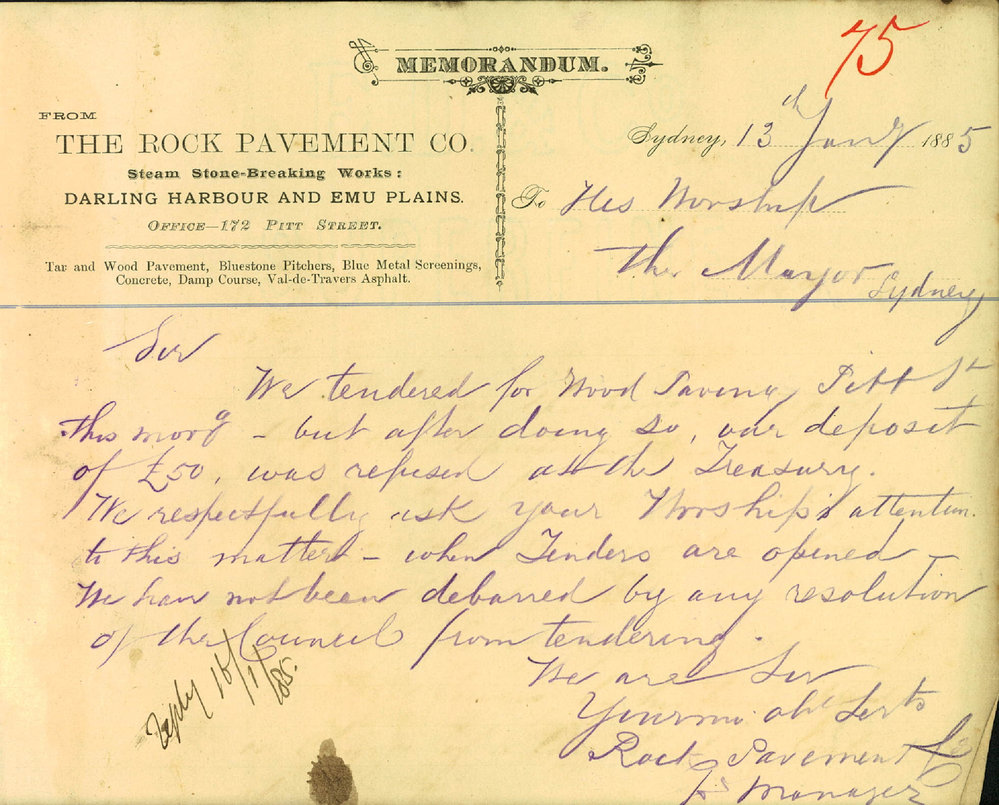 75
MEMORANDUM.
FROM
THE ROCK PAVEMENT CO.
Steam Stone-Breaking Works:
DARLING HARBOUR AND EMU PLAINS.
OFFICE—172 PITT STREET.
Tar and Wood Pavement, Bluestone Pitchers, Blue Metal Screenings,
Concrete, Damp Course, Val-de-Travers Asphalt.
Sydney, 13th Jany 1885
To His Worship
the Mayor
Sydney
Sir
We tendered for Wood Paving Pitt St
this morng - but after doing so, our deposit
of £50, was refused at the Treasury.
We respectfully ask your Worship's attention
to this matter - when Tenders are opened -
We have not been debarred by any resolution
of the Council from tendering.
We are Sir
Your mo obt Servts
Rock Pavement Co
Manager
Reply 16/1/85.